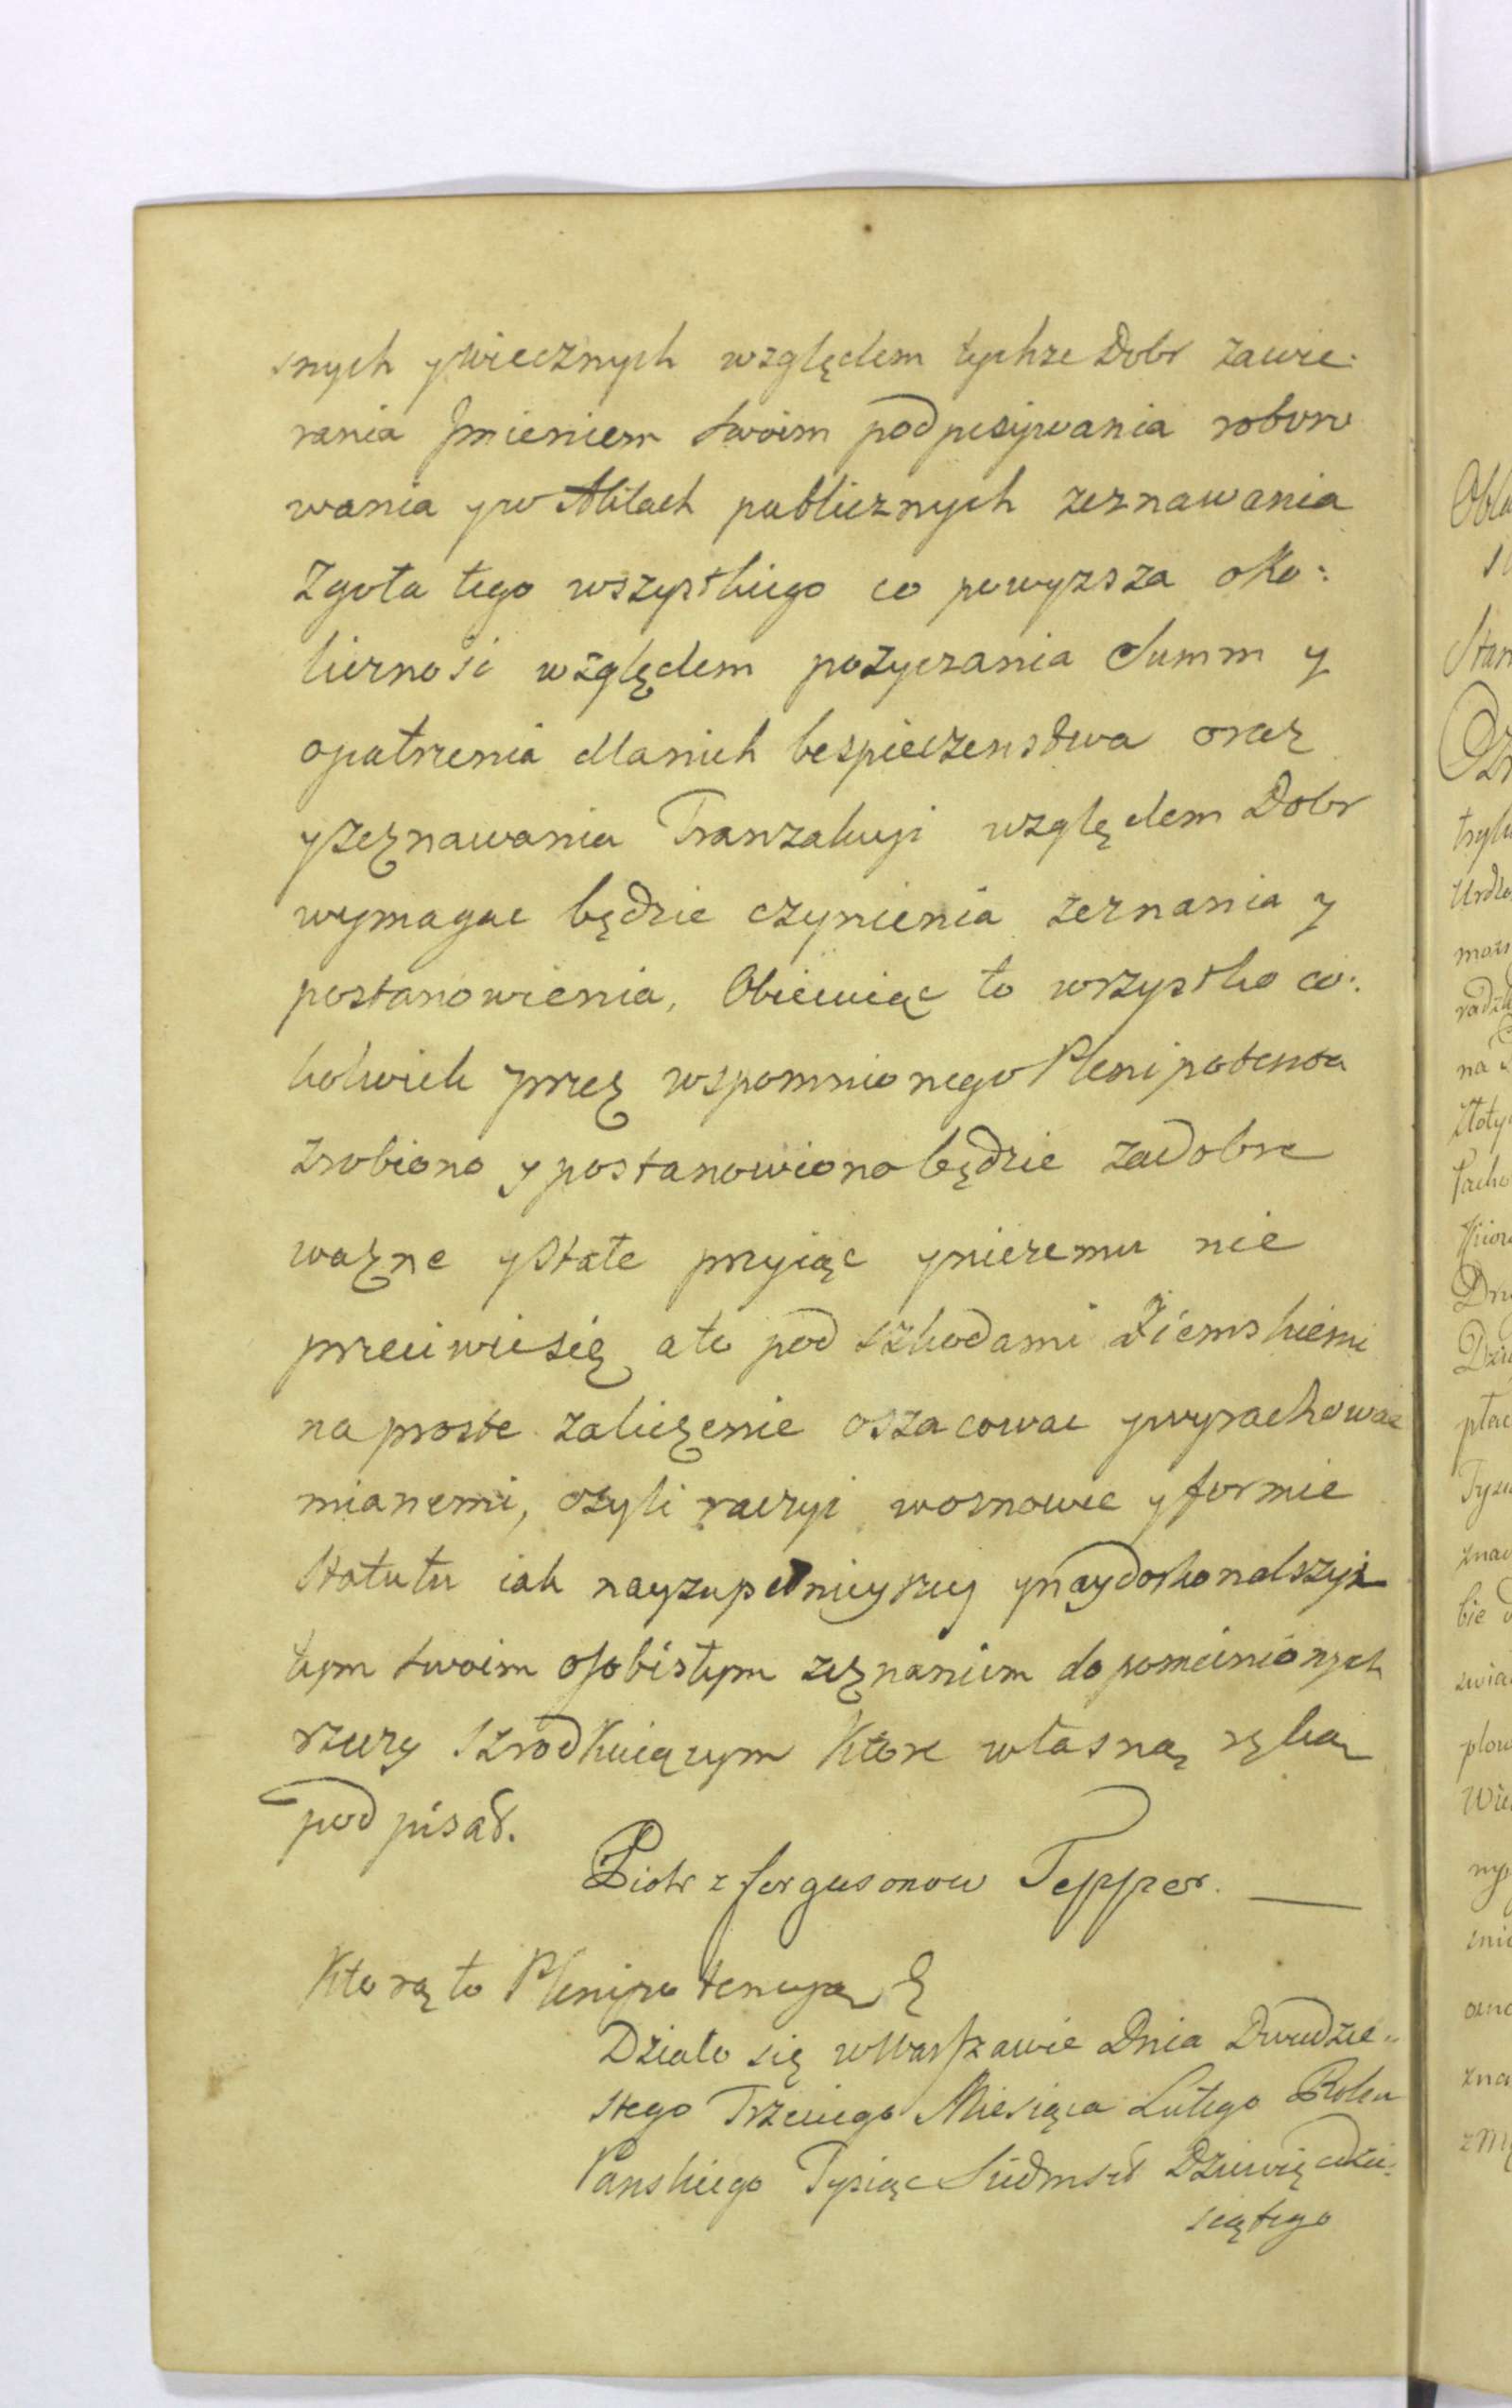 snych y wiecznych względem tychze Dobr zawie-
rania Jmieniem swoim podpisywania roboro
wania y w Aktach publicznych zeznawania
Zgoła tego wszystkiego co powyzsza oko:
licznosc względem pozyczania Summ y
opatrzenia dla nich bespieczenstwa oraz
y zeznawania Tranzakcyi względem Dobr
wymagac będzie czynienia zeznania y
postanowienia, Obiecuiąc to wszystko co:
kolwiek przez wspomnionego Plenipotenta
zrobiono y postanowiono będzie za dobre
wazne y Stałe przyiąc y niczemu nie
przeciwic się a to pod szkodami Ziemskiemi
na proste zaliczenie oszacowac y wyrachowac
mianemi, czyli raczyi w osnowie y formie
Statutu iak nayzupełnieyszey y naydoskonalszyi
tym swoim osobistym zeznaniem do pomienionych
rzeczy szrodkuiącym Ktore własną ręką
podpisał.
Piotr z fergusonow Tepper.
Ktorą to Plenipotencyą &
Działo się w Warszawie Dnia Dwudzie-
stego Trzeciego Miesiąca Lutego Roku
Panskiego Tysiąc Siedmset Dziewiędzie:
siątego